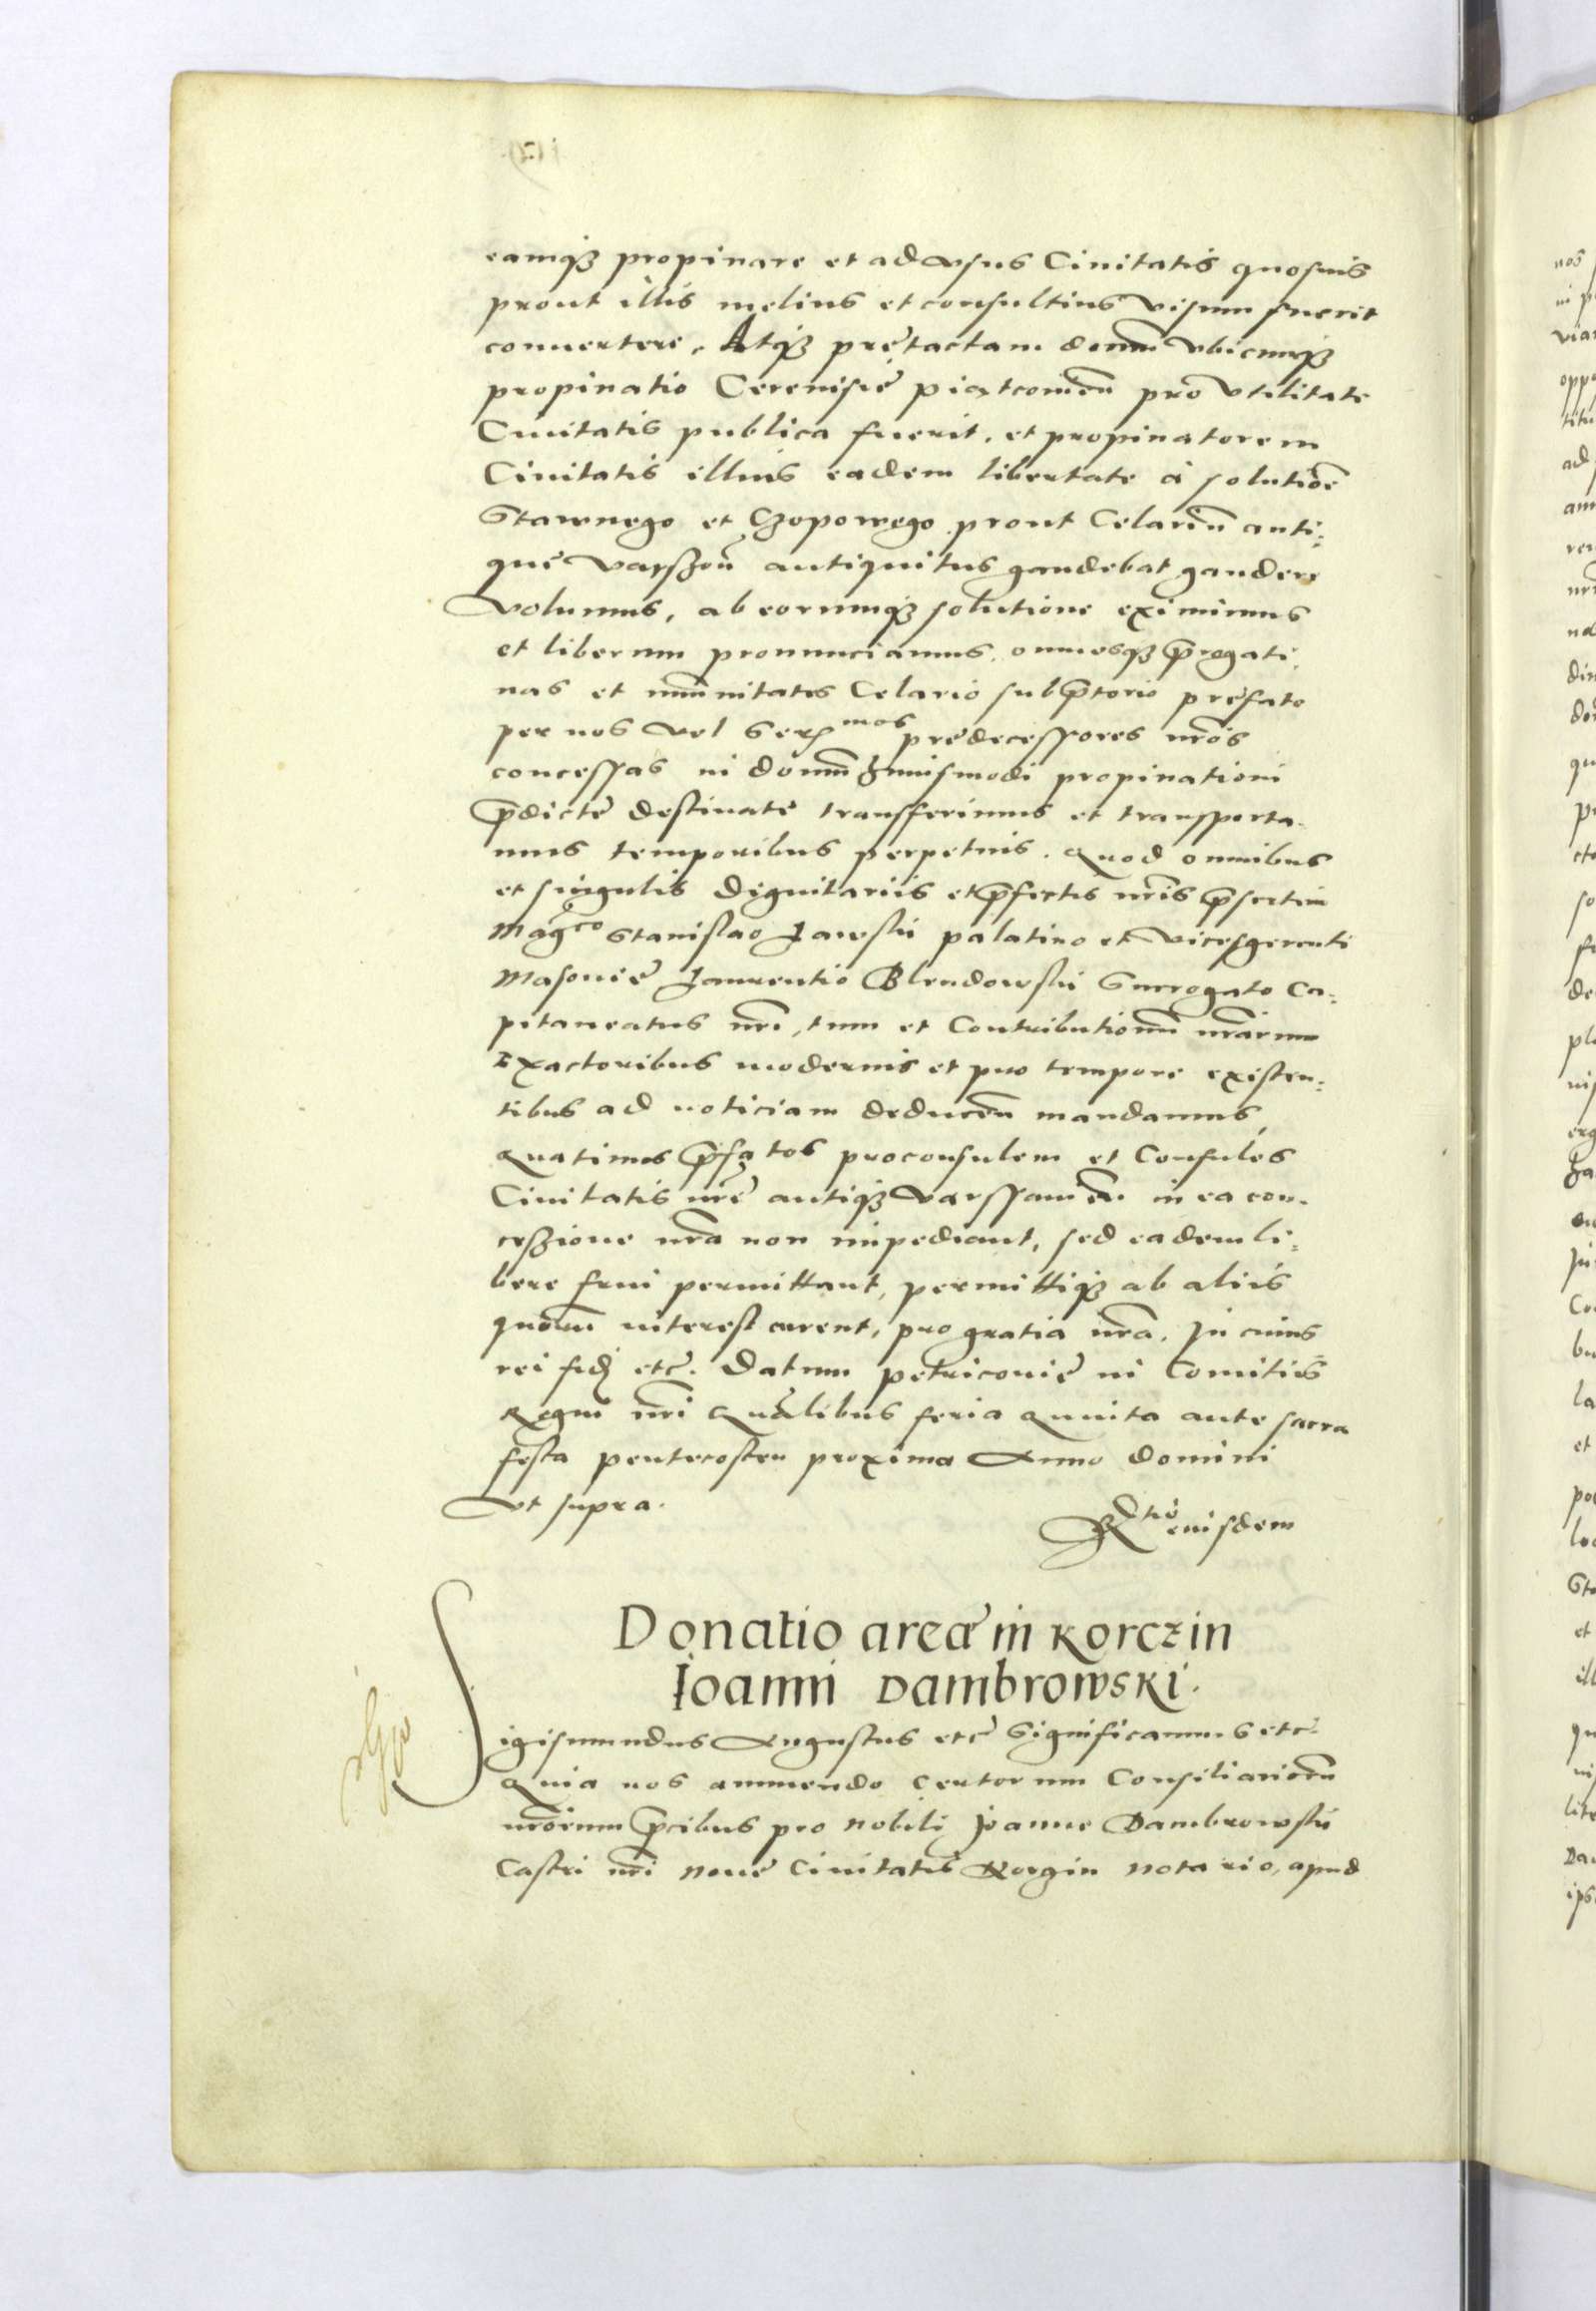 eamq3 propinare et ad vsus Ciuitatis quosuis
prout illis melius et consultius visum fuerit
conuertere. Atq3 pretactam domũ vbicunq3
propinatio Cereuisie piatcomeñ pro vtilitate
Ciuitatis publica fuerit, et propinatorem
Ciuitatis illius eadem libertate á solutioẽ
Stawnego et Czopowego prout Celariũ anti=
que varszouiẽ antiquitus gaudebat gaudere
volumus, ab eorumq3 solutione eximimus
et liberum pronunciamus. omnesq3 p̃rogati
uas et im̃unitates Celario subp̃torio prefato
per nos vel Ser^mos predecessores nr̃os
concessas in domũ h̃muismodi propinationi
p̃dicte destinate transferimus et transporta
mus temporibus perpetuis. Quod omnibus
et singulis dignitariis et p̃fectis nr̃is p̃sertim
Mag^co Stanislao Lawski palatino et vicesgerenti
Masouie Laurentio Blendowski Surrogato Ca=
pitaneatus nr̃i, tum et Contributionũ nr̃arum
Exactoribus modernis et pro tempore existen=
tibus ad noticiam deduceñ mandamus,
Quatinus p̃fatos proconsulem et Consules
Ciuitatis nr̃e antiq3 varssauieñ in ea con=
ceszione nr̃a non impediant, sed eadem li=
bere frui permittant, permittiq3 ab aliis
quorũ interest curent, pro gratia nr̃a. In cuius
rei fid̃ etc̃. Datum petricouie in Comitiis
Regni nr̃i Gñalibus feria Quinta ante sacra
festa pentecosten proxima Anno domini
vt supra.
R^tio eiusdem
Donatio areæ in Korczin
Ioanni Dambrowski.
Sigismundus Augustus etc̃ Significamus etc̃.
Quia nos annuendo certorum Consiliariorũ
nr̃orum p̃cibus pro nobili Joanne Dambrowski
Castri nr̃i Noue Ciuitatis Korczin notario, apud